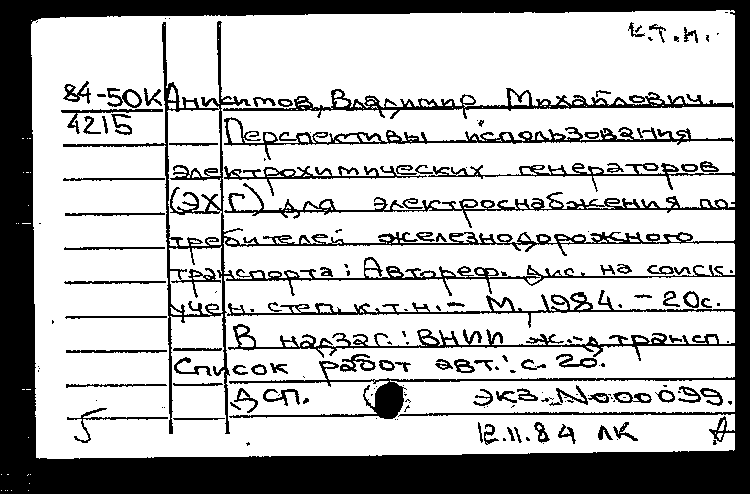 к.т.н.
84-50К Аникитов, Владимир Михайлович.
4215 Перспективы использования
электрохимических генераторов
(ЭХГ) для электроснабжения по-
требителей железнодорожного
транспорта: Автореф. дис. на соиск.
учен. степ. к.т.н. - М., 1984. - 20с.
В надзаг.: ВНИИ ж.-д. трансп.
Список работ авт.: с. 20.
ДСП. экз. N000099.
5 12.11.84 ЛК